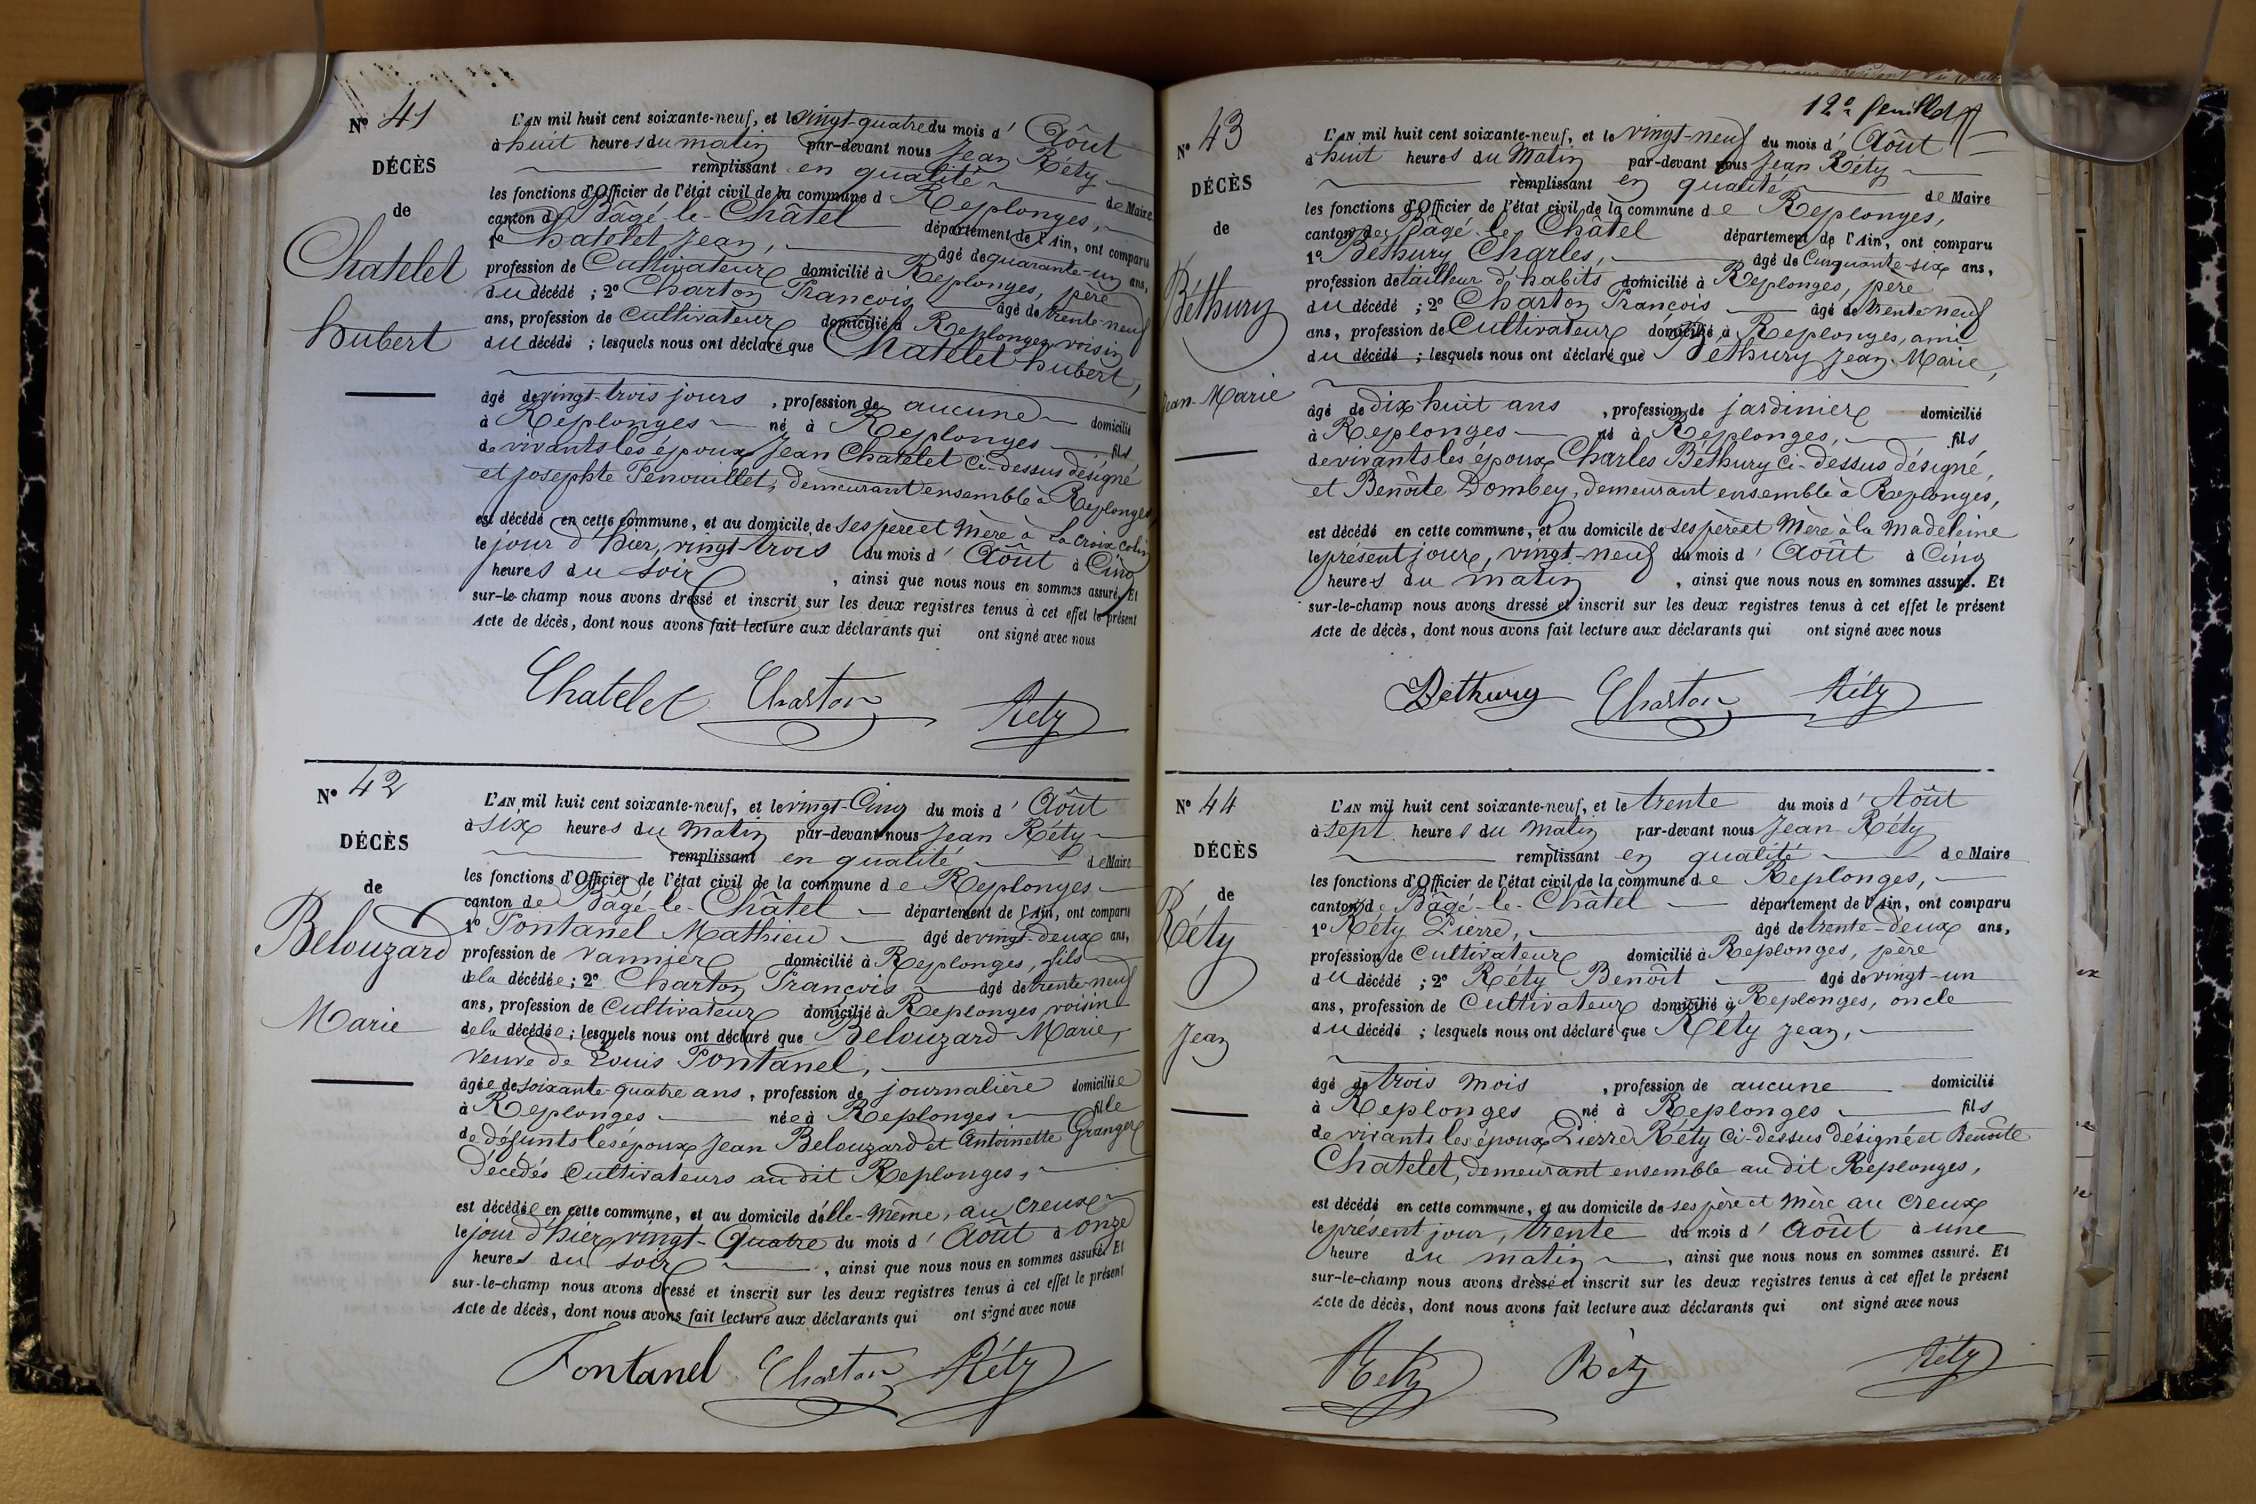 N° 41
DÉCÈS
de
Chatelet
hubert
L'AN mil huit cent soixante-neuf, et le vingt-quatre du mois d' Août
à huit heures du matin par-devant nous Jean Réty
remplissant en qualité de Maire
les fonctions d'Officier de l'état civil de la commune d Replonges,
canton de Bâgé-le-Châtel département de l'Ain, ont comparu
1° Chatelet Jean, âgé de quarante-un ans,
profession de Cultivateur domicilié à Replonges, père
du décédé ; 2° Charton François âgé de trente-neuf
ans, profession de cultivateur domicilié à Replonges voisin
du décédé ; lesquels nous ont déclaré que Chatelet hubert,
âgé de vingt-trois jours , profession de aucune domicilié
à Replonges né à Replonges fils
de vivants les époux Jean Chatelet ci-dessus désigné
et josephte Penouillet, demeurant ensemble à Replonges,
est décédé en cette commune, et au domicile de ses père et Mère à La Croix Colin
le jour d'hier, vingt trois du mois d' Août à Cinq
heures du soir , ainsi que nous nous en sommes assuré. Et
sur-le-champ nous avons dressé et inscrit sur les deux registres tenus à cet effet le présent
Acte de décès, dont nous avons fait lecture aux déclarants qui ont signé avec nous
Chatelet Charton Réty
N° 42
DÉCÈS
de
Belouzard
Marie
L'AN mil huit cent soixante-neuf, et le vingt-Cinq du mois d' Août
à six heures du matin par-devant nous Jean Réty
remplissant en qualité de Maire
les fonctions d'Officier de l'état civil de la commune de Replonges
canton de Bâgé-le-Châtel département de l'Ain, ont comparu
1° Fontanel Mathieu âgé de vingt-deux ans,
profession de vannier domicilié à Replonges, fils
de la décédée ; 2° Charton François âgé de trente-neuf
ans, profession de Cultivateur domicilié à Replonges voisin
de la décédée ; lesquels nous ont déclaré que Belouzard Marie,
veuve de Louis Fontanel,
âgée de soixante-quatre ans , profession de journalière domiciliée
à Replonges née à Replonges fille
de défunts les époux Jean Belouzard et Antoinette Granger
décédés Cultivateurs au dit Replonges,
est décédée en cette commune, et au domicile d'elle-même, au Creux
le jour d'hier, vingt-Quatre du mois d' Août à onze
heures du soir , ainsi que nous nous en sommes assuré. Et
sur-le-champ nous avons dressé et inscrit sur les deux registres tenus à cet effet le présent
Acte de décès, dont nous avons fait lecture aux déclarants qui ont signé avec nous
Fontanel Charton Réty
12e feuillet
N° 43
DÉCÈS
de
Béthury
Jean-Marie
L'AN mil huit cent soixante-neuf, et le vingt-neuf du mois d' Août
à huit heures du Matin par-devant nous Jean Réty
remplissant en qualité de Maire
les fonctions d'Officier de l'état civil de la commune de Replonges,
canton de Bâgé-le-Châtel département de l'Ain, ont comparu
1° Béthury Charles, âgé de Cinquante-six ans,
profession de tailleur d'habits domicilié à Replonges, père
du décédé ; 2° Charton François âgé de trente-neuf
ans, profession de Cultivateur domicilié à Replonges, ami
du décédé ; lesquels nous ont déclaré que Béthury Jean-Marie,
âgé de dix huit ans , profession de jardinier domicilié
à Replonges né à Replonges, fils
de vivants les époux Charles Béthury ci-dessus désigné,
et Benoîte Dombey, demeurant ensemble à Replonges,
est décédé en cette commune, et au domicile de ses père et Mère à la Madeleine
le présent jour, vingt-neuf du mois d' Août à Cinq
heures du matin , ainsi que nous nous en sommes assuré. Et
sur-le-champ nous avons dressé et inscrit sur les deux registres tenus à cet effet le présent
Acte de décès, dont nous avons fait lecture aux déclarants qui ont signé avec nous
Béthury Charton Réty
N° 44
DÉCÈS
de
Réty
Jean
L'AN mil huit cent soixante-neuf, et le trente du mois d' Août
à sept heures du Matin par-devant nous Jean Réty
remplissant en qualité de Maire
les fonctions d'Officier de l'état civil de la commune de Replonges,
canton de Bâgé-le-Châtel département de l'Ain, ont comparu
1° Réty Pierre, âgé de trente-deux ans,
profession de Cultivateur domicilié à Replonges, père
du décédé ; 2° Réty Benoît âgé de vingt-un
ans, profession de Cultivateur domicilié à Replonges, oncle
du décédé ; lesquels nous ont déclaré que Réty Jean,
âgé de trois mois , profession de aucune domicilié
à Replonges né à Replonges fils
de vivants les époux Pierre Réty ci-dessus désigné et Benoîte
Chatelet, demeurant ensemble au dit Replonges,
est décédé en cette commune, et au domicile de ses père et Mère au Creux
le présent jour, trente du mois d' Août à une
heure du matin , ainsi que nous nous en sommes assuré. Et
sur-le-champ nous avons dressé et inscrit sur les deux registres tenus à cet effet le présent
Acte de décès, dont nous avons fait lecture aux déclarants qui ont signé avec nous
Réty Réty Réty